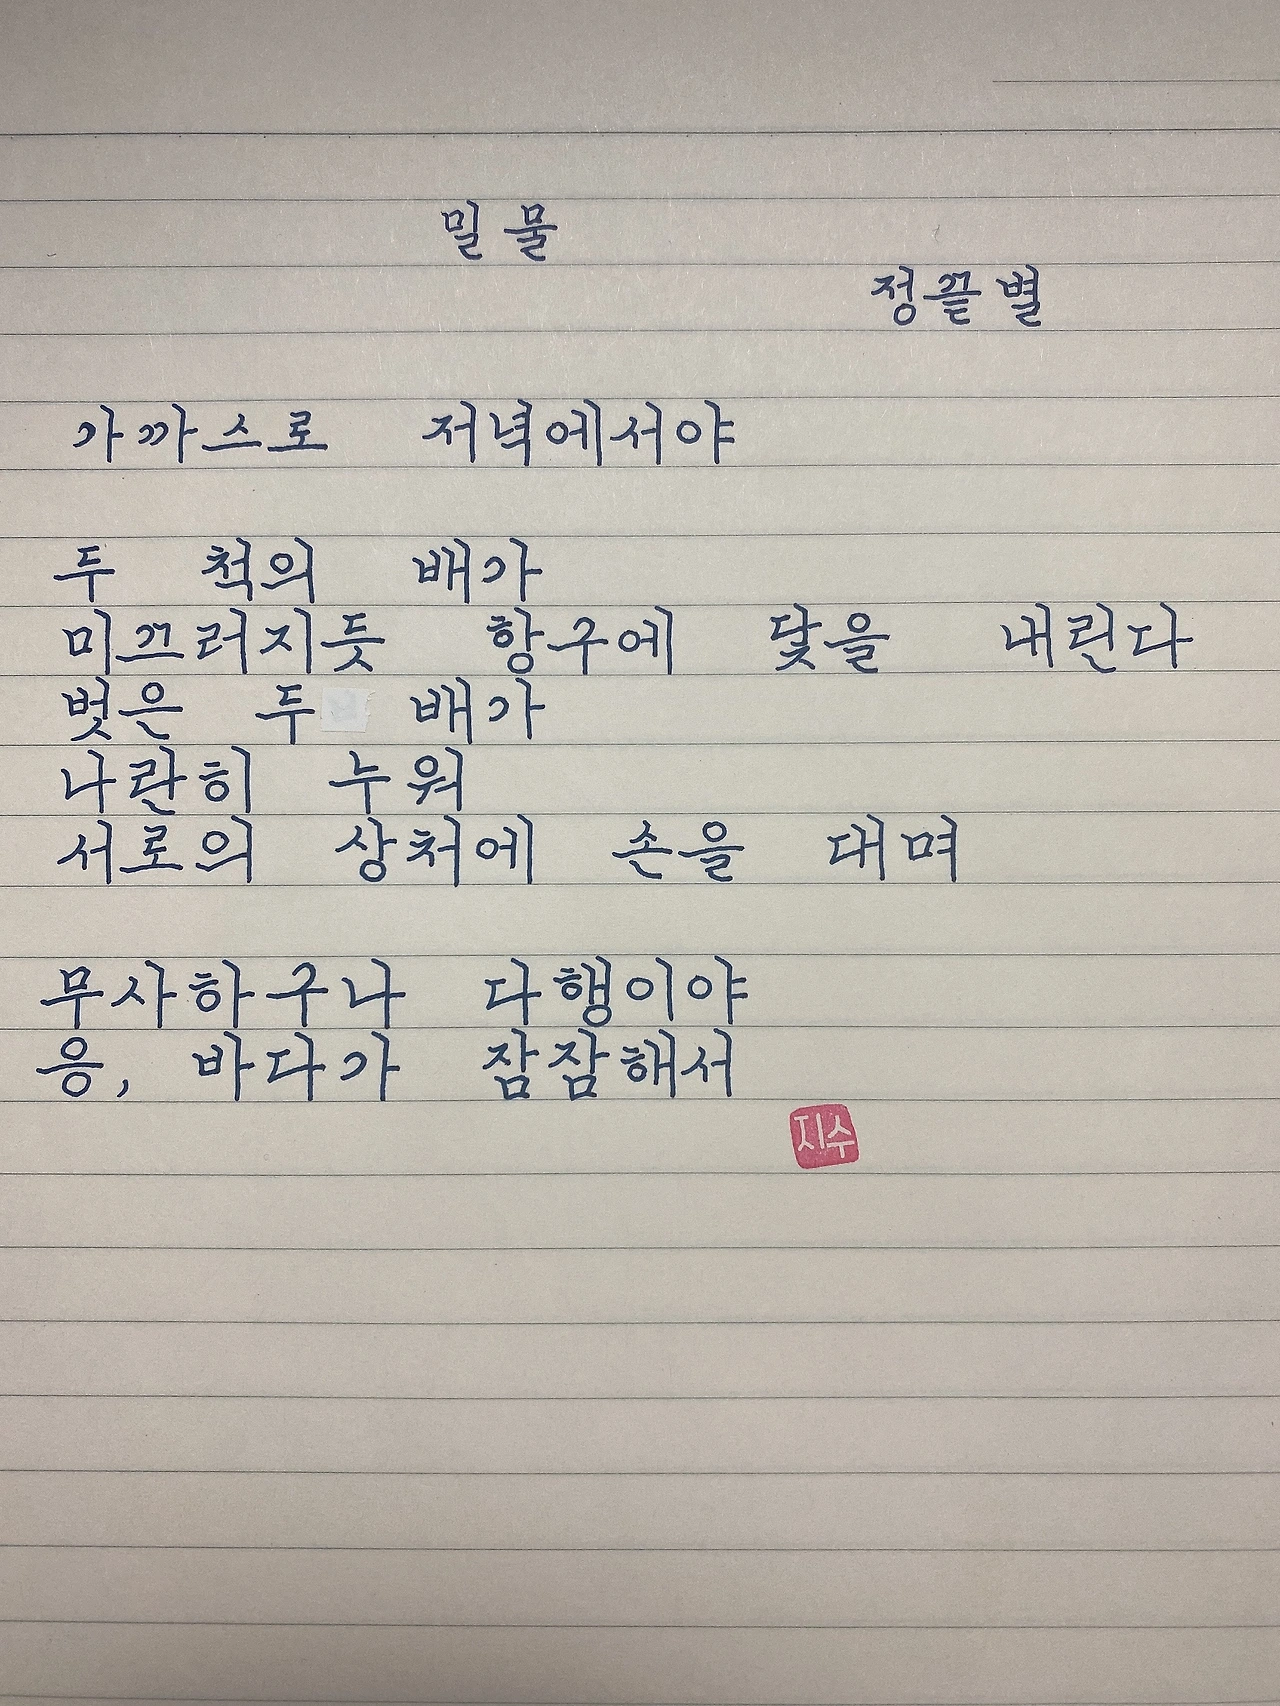 밀물
정끝별
가까스로 저녁에서야
두 척의 배가
미끄러지듯 항구에 닻을 내린다
벗은 두 배가
나란히 누워
서로의 상처에 손을 대며
무사하구나 다행이야
응, 바다가 잠잠해서
지수